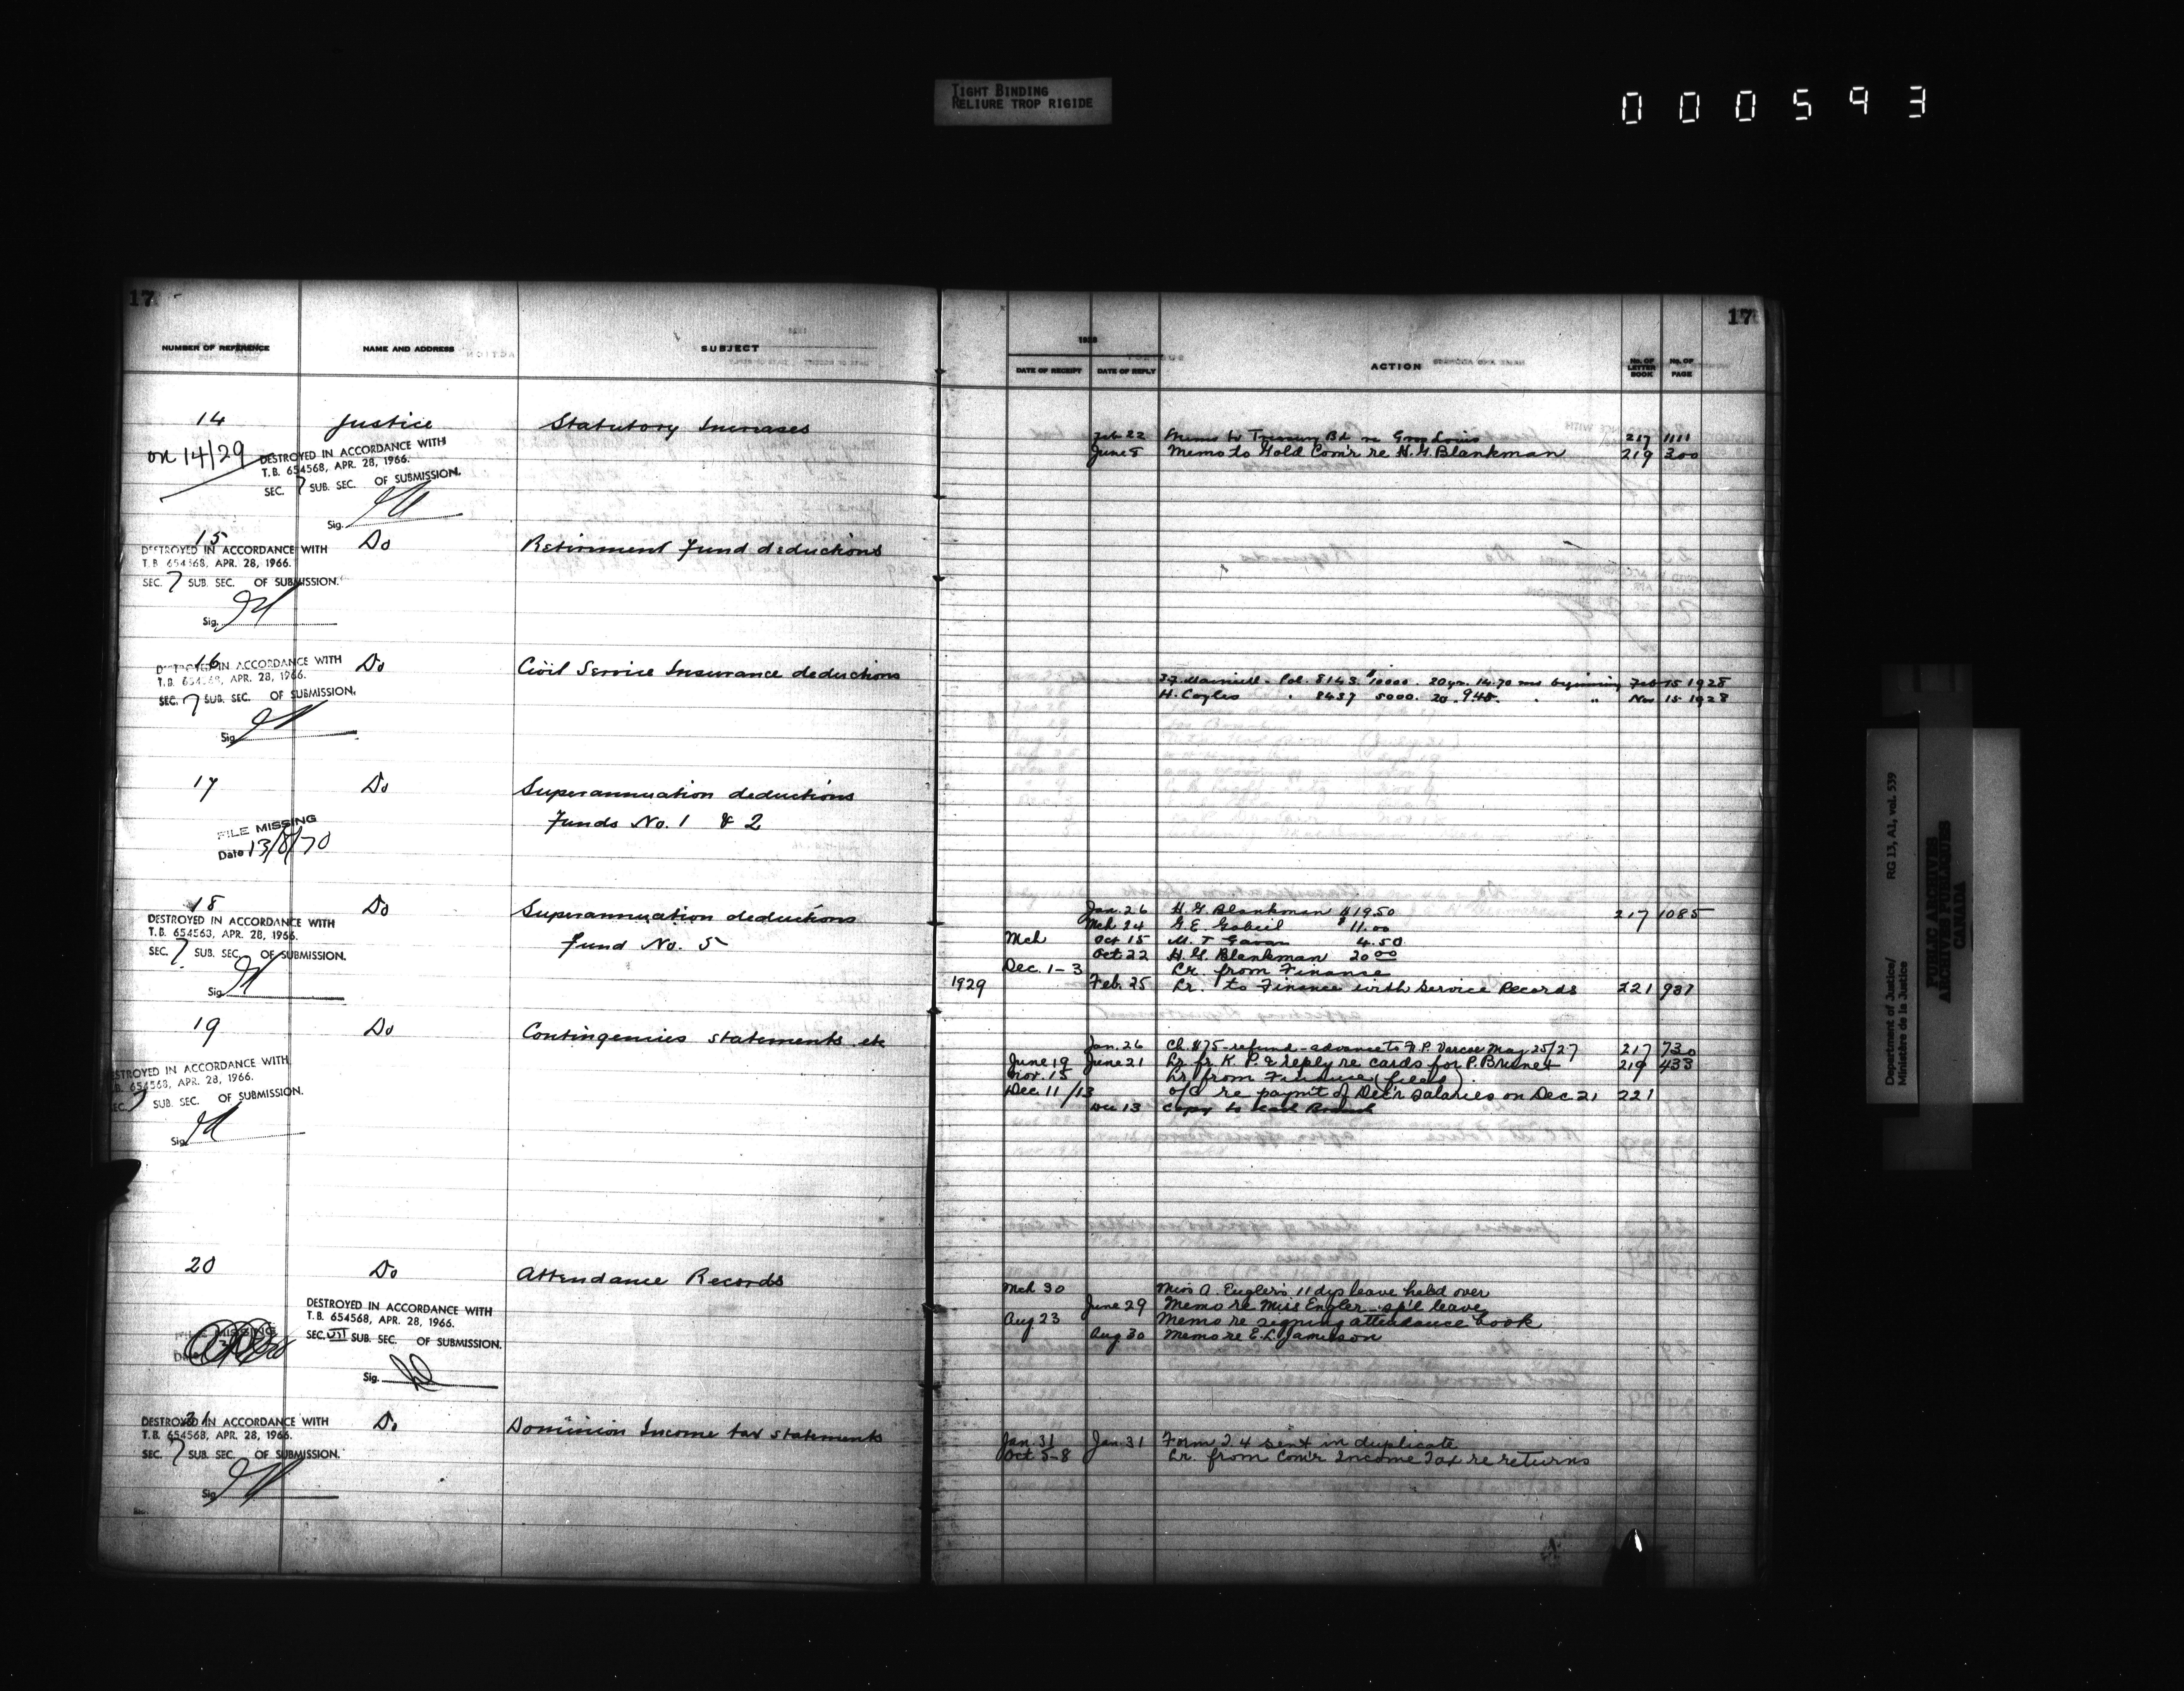 TIGHT BINDING
RELIURE TROP RIGIDE
000593
17
NUMBER OF REFERENCE NAME AND ADDRESS SUBJECT
14 Justice Statutory Increases
on 14/29
DESTROYED IN ACCORDANCE WITH
T.B. 654568, APR. 28, 1966.
SEC. 7 SUB. SEC. OF SUBMISSION.
Sig.
15 Do Retirement Fund deductions
DESTROYED IN ACCORDANCE WITH
T.B. 654568, APR. 28, 1966.
SEC. 7 SUB. SEC. OF SUBMISSION.
Sig.
16 Do Civil Service Insurance deductions
DESTROYED IN ACCORDANCE WITH
T.B. 654568, APR. 28, 1966.
SEC. 7 SUB. SEC. OF SUBMISSION.
Sig.
17 Do Superannuation deductions
Funds No. 1 & 2
FILE MISSING
Date 13/8/70
18 Do Superannuation deductions
Fund No. 5
DESTROYED IN ACCORDANCE WITH
T.B. 654568, APR. 28, 1966.
SEC. 7 SUB. SEC. OF SUBMISSION.
Sig.
19 Do Contingencies statements etc
DESTROYED IN ACCORDANCE WITH
T.B. 654568, APR. 28, 1966.
SEC. 7 SUB. SEC. OF SUBMISSION.
Sig.
20 Do Attendance Records
DESTROYED IN ACCORDANCE WITH
T.B. 654568, APR. 28, 1966.
SEC. VII SUB. SEC. OF SUBMISSION.
Sig.
FILE MISSING
21 Do Dominion Income tax statements
DESTROYED IN ACCORDANCE WITH
T.B. 654568, APR. 28, 1966.
SEC. 7 SUB. SEC. OF SUBMISSION.
Sig.
17
1928
DATE OF RECEIPT DATE OF REPLY ACTION No. OF LETTER BOOK No. OF PAGE
Feb 22 Memo to Treasury Bd re 217 1111
June 8 Memo to Gold Com'r re H.G. Blankman 219 300
Pol. 8143 $10000. 20 yrs. 14.70 beginning Feb 15 1928
H. Coyles " 8437 5000. 20 . 9.45. " " Nov 15 1928
Jan. 26 H.G. Blankman $19.50 217 1085
Mch 24 G.E. Gobeil $11.00
Mch Oct 15 M.T. Gavan 4.50
Oct 22 H.G. Blankman 20 00
Dec. 1-3 Lr. from Finance
1929 Feb. 25 Lr. to Finance with Service Records 221 987
Jan. 26 Ch. $75 - refund - advance to F.P. Varcoe May 25/27 217 730
June 19 June 21 Lr. fr. K.P. & reply re cards for P. Brunet 219 433
Nov. 15 Lr from Finance (filed)
Dec. 11/13 o/c re paym't of Dec'r salaries on Dec 21 221
Dec 13 Copy to each Branch
Mch 30 Miss A. Engler's 11 dys leave held over
June 29 Memo re Miss Engler - sp'l leave
Aug 23 Memo re signing attendance book
Aug 30 Memo re E.L. Jamieson
Jan 31 Jan 31 Form T.4 sent in duplicate
Oct 5-8 Lr. from Com'r Income Tax re returns
Department of Justice/ RG 13, A1, vol. 539
Ministère de la Justice
PUBLIC ARCHIVES
ARCHIVES PUBLIQUES
CANADA